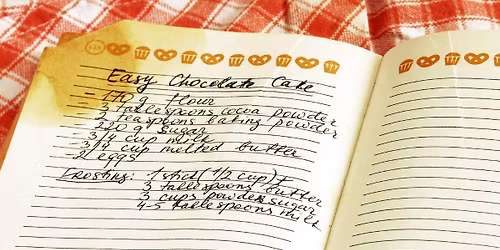 Easy Chocolate Cake
- 170 g flour
3 tablespoons cocoa powder
2 teaspoons baking powder
220 g sugar
3/4 cup milk
3/4 cup melted butter
2 eggs
Frosting: 1 stick (1/2 cup)
3 tablespoons butter
3 cups powder sugar
4-5 tablespoons milk